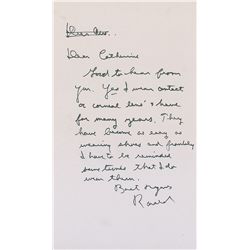 Dear Catherine
Good to hear from
you. Yes I wear contact
or corneal lens' & have
for many years. They
have become as easy as
wearing shoes and frankly
I have to be reminded
sometimes that I do
wear them.
Best regards